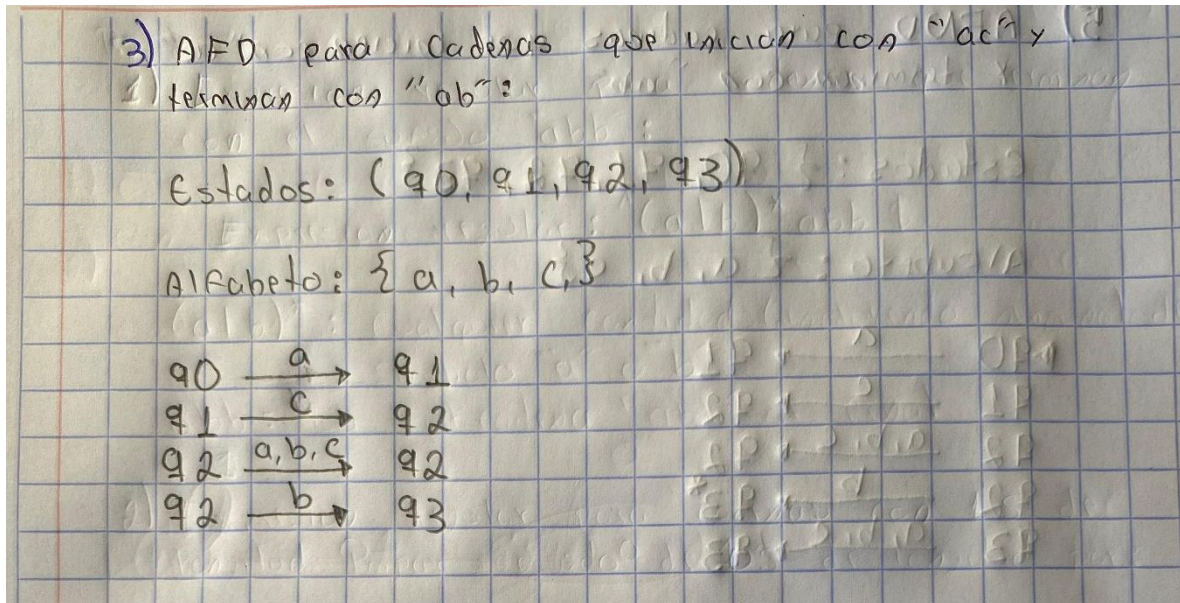 3) AFD para Cadenas que inician con "ac" y
terminan con "ab":
Estados: (q0, q1, q2, q3)
Alfabeto: {a, b, c,}
q0 a→ q1
q1 c→ q2
q2 a,b,c→ q2
q2 b→ q3